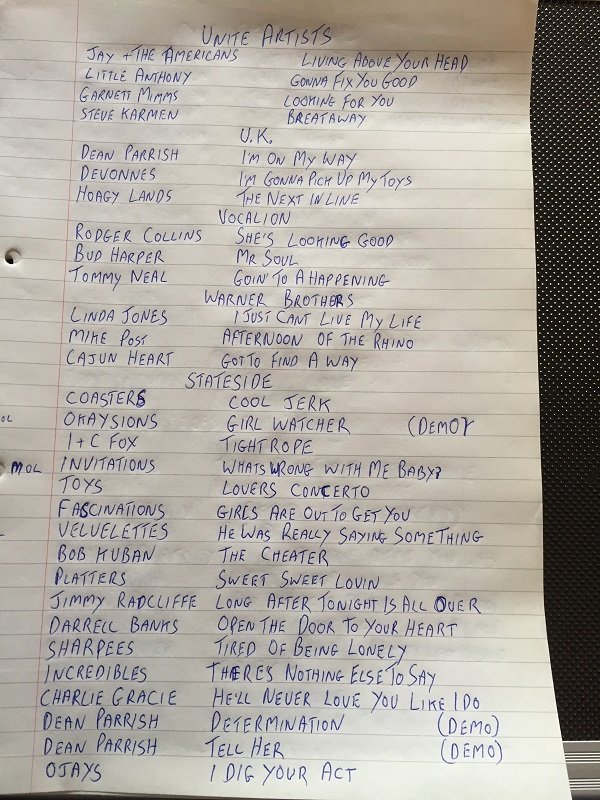 UNITE ARTISTS
JAY + THE AMERICANS LIVING ABOVE YOUR HEAD
LITTLE ANTHONY GONNA FIX YOU GOOD
GARNETT MIMMS LOOKING FOR YOU
STEVE KARMEN BREATAWAY
U.K.
DEAN PARRISH I'M ON MY WAY
DEVONNES I'M GONNA PICK UP MY TOYS
HOAGY LANDS THE NEXT IN LINE
VOCALION
RODGER COLLINS SHE'S LOOKING GOOD
BUD HARPER MR SOUL
TOMMY NEAL GOIN' TO A HAPPENING
WARNER BROTHERS
LINDA JONES I JUST CANT LIVE MY LIFE
MIKE POST AFTERNOON OF THE RHINO
CAJUN HEART GOT TO FIND A WAY
STATESIDE
COASTERS COOL JERK
OKAYSIONS GIRL WATCHER (DEMO)
I + C FOX TIGHTROPE
INVITATIONS WHATS WRONG WITH ME BABY?
TOYS LOVERS CONCERTO
FASCINATIONS GIRLS ARE OUT TO GET YOU
VELVELETTES HE WAS REALLY SAYING SOMETHING
BOB KUBAN THE CHEATER
PLATTERS SWEET SWEET LOVIN
JIMMY RADCLIFFE LONG AFTER TONIGHT IS ALL OVER
DARRELL BANKS OPEN THE DOOR TO YOUR HEART
SHARPEES TIRED OF BEING LONELY
INCREDIBLES THERES NOTHING ELSE TO SAY
CHARLIE GRACIE HE'LL NEVER LOVE YOU LIKE I DO
DEAN PARRISH DETERMINATION (DEMO)
DEAN PARRISH TELL HER (DEMO)
OJAYS I DIG YOUR ACT